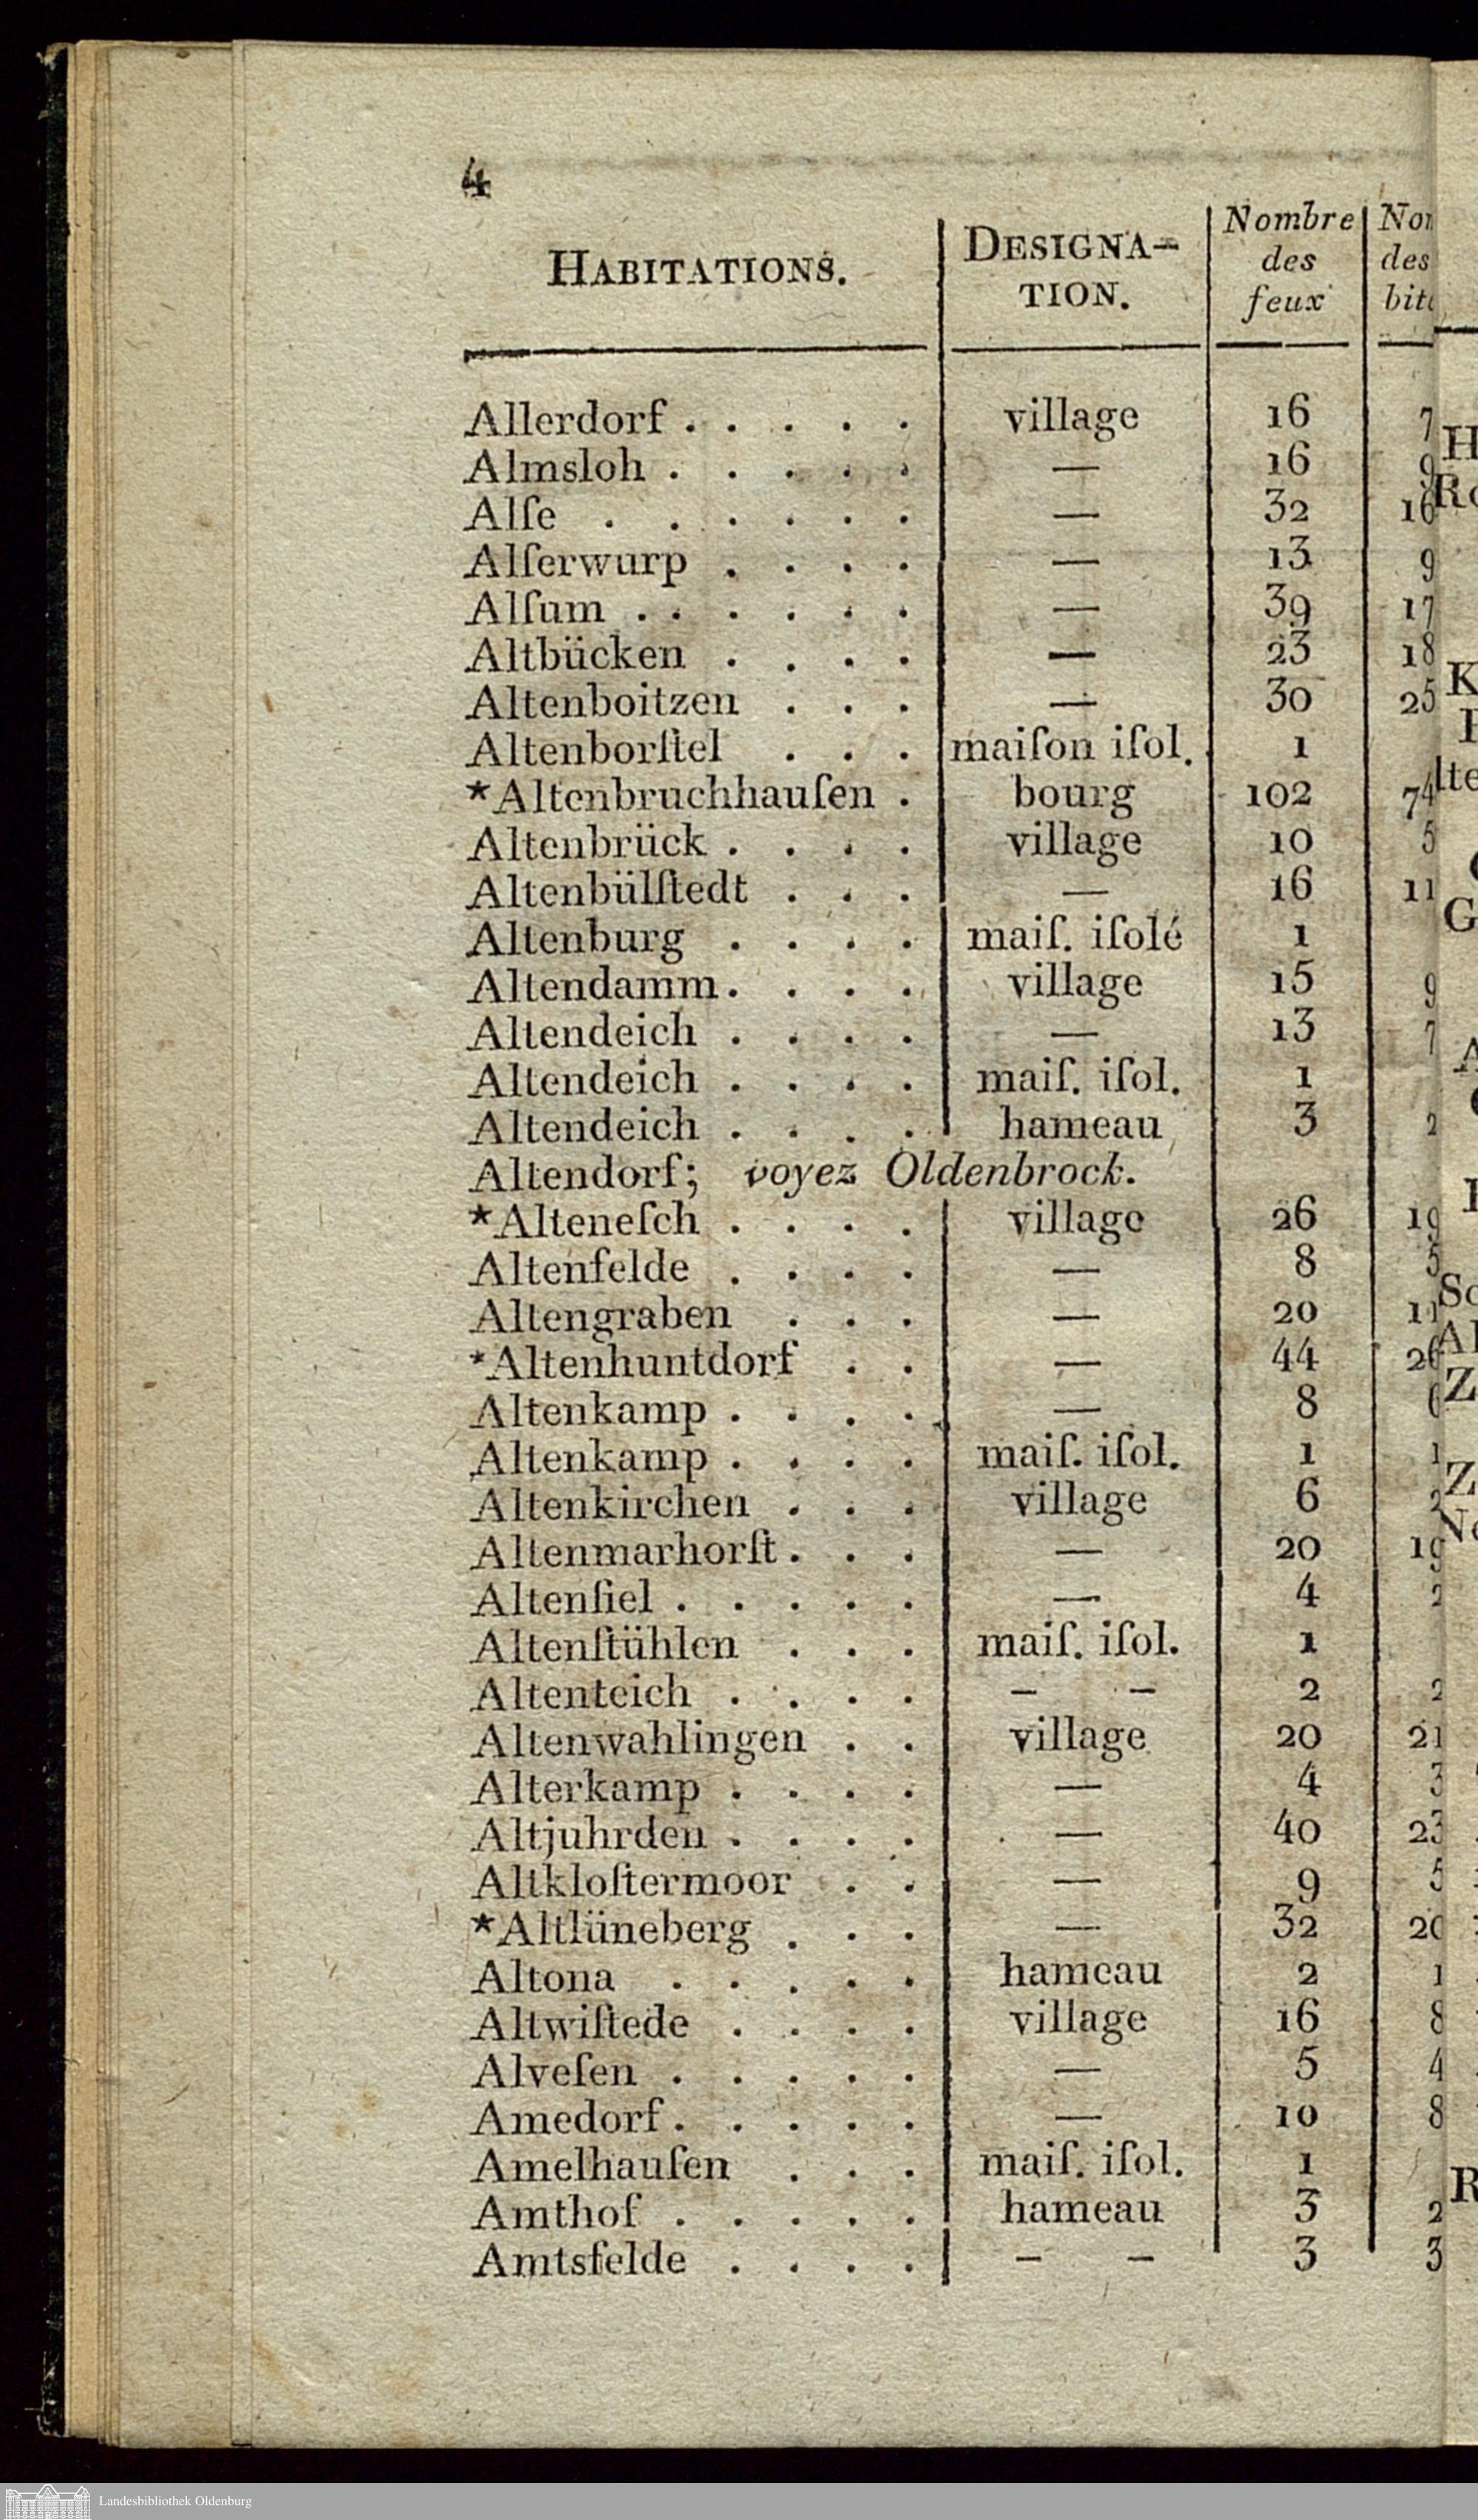 4
HABITATIONS. DESIGNA-TION. Nombre des feux
Allerdorf . . . . . village 16
Almsloh . . . . . — 16
Alſe . . . . . . — 32
Alſerwurp . . . . — 13
Alſum . . . . . . — 39
Altbücken . . . . — 23
Altenboitzen . . . — 30
Altenborſtel . . . maiſon iſol. 1
*Altenbruchhauſen . bourg 102
Altenbrück . . . . village 10
Altenbülſtedt . . . — 16
Altenburg . . . . maiſ. iſolé 1
Altendamm . . . . village 15
Altendeich . . . . — 13
Altendeich . . . . maiſ. iſol. 1
Altendeich . . . . hameau 3
Altendorf; voyez Oldenbrock.
*Alteneſch . . . . village 26
Altenfelde . . . . — 8
Altengraben . . . — 20
*Altenhuntdorf . . — 44
Altenkamp . . . . — 8
Altenkamp . . . . maiſ. iſol. 1
Altenkirchen . . . village 6
Altenmarhorſt . . . — 20
Altenſiel . . . . . — 4
Altenſtühlen . . . maiſ. iſol. 1
Altenteich . . . . – – 2
Altenwahlingen . . village 20
Alterkamp . . . . — 4
Altjuhrden . . . . — 40
Altkloſtermoor . . — 9
*Altlüneberg . . . — 32
Altona . . . . . hameau 2
Altwiſtede . . . . village 16
Alveſen . . . . . — 5
Amedorf . . . . . — 10
Amelhauſen . . . maiſ. iſol. 1
Amthof . . . . . hameau 3
Amtsfelde . . . . – – 3
Landesbibliothek Oldenburg